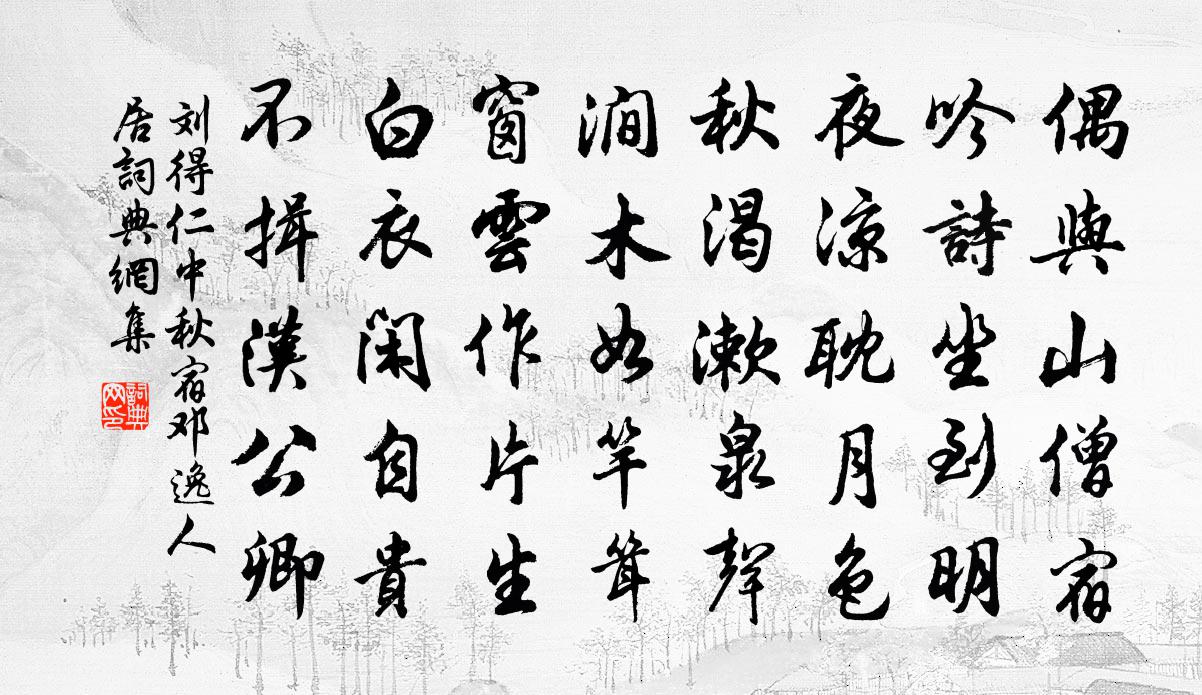 偶與山僧宿
吟詩坐到明
夜涼耽月色
秋渴漱泉聲
澗木如竿聳
窗雲作片生
白衣閑自貴
不揖漢公卿
刘得仁中秋宿邓逸人
居詞典網集
詞典網印